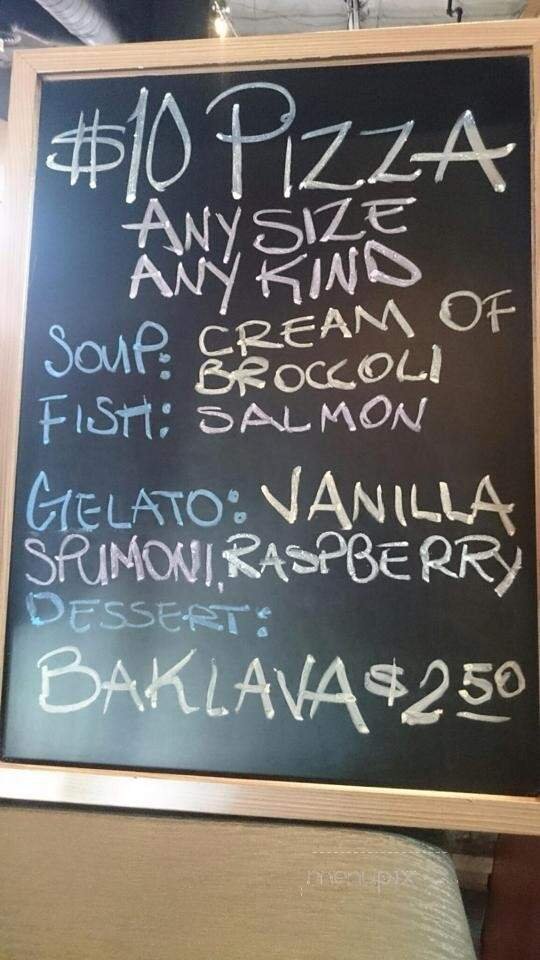 $10 PIZZA
ANY SIZE
ANY KIND
SOUP: CREAM OF
BROCCOLI
FISH: SALMON
GELATO: VANILLA
SPUMONI, RASPBERRY
DESSERT:
BAKLAVA $2.50
menupix